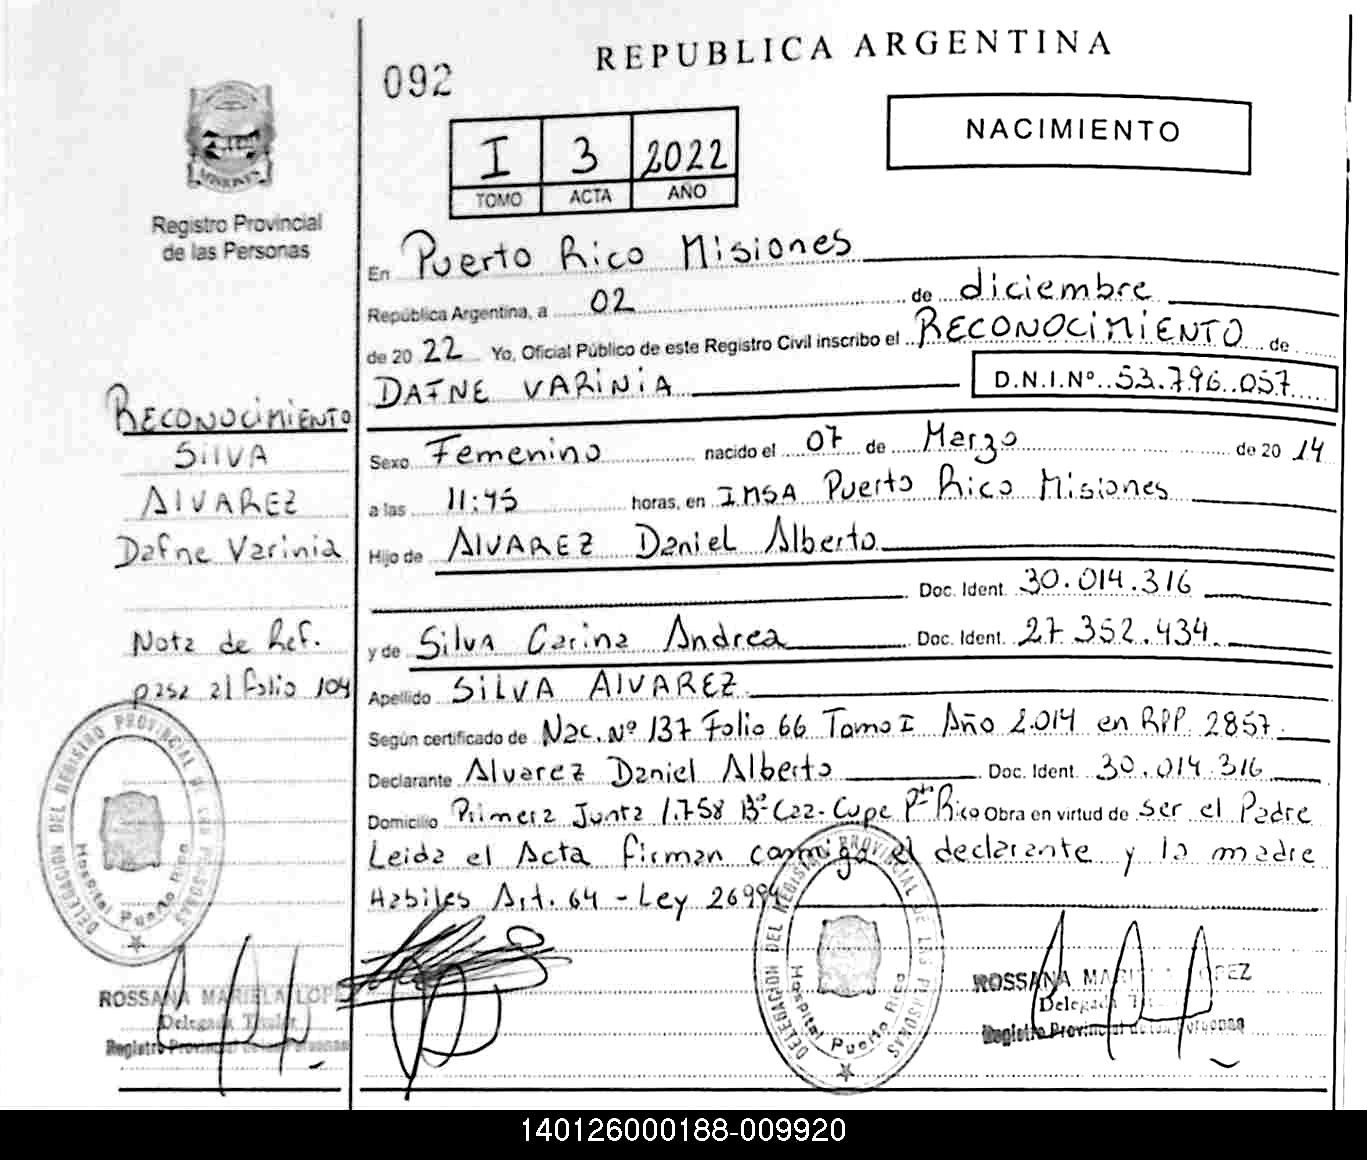 REPUBLICA ARGENTINA
092
NACIMIENTO
I 3 2022
TOMO ACTA AÑO
MISIONES
Registro Provincial
de las Personas
En Puerto Rico Misiones
República Argentina, a 02 de diciembre
de 20 22 Yo, Oficial Público de este Registro Civil inscribo el RECONOCIMIENTO de
DAFNE VARINIA D.N.I.Nº 53.796.057
RECONOCIMIENTO
SILVA
ALVAREZ
Dafne Varinia
Nota de Ref.
pasa al folio 104
Sexo Femenino nacido el 07 de Marzo de 20 14
a las 11:45 horas, en IMSA Puerto Rico Misiones
Hijo de ALVAREZ Daniel Alberto
Doc. Ident. 30.014.316
y de Silva Carina Andrea Doc. Ident. 27.352.434
Apellido SILVA ALVAREZ
Según certificado de Nac. Nº 137 Folio 66 Tomo I Año 2.014 en RPP. 2857
Declarante Alvarez Daniel Alberto Doc. Ident. 30.014.316
Domicilio Primera Junta 1.758 Bº Caa-Cupe Pto Rico Obra en virtud de ser el Padre
Leida el Acta firman conmigo el declarante y la madre
Habiles Art. 64 - Ley 26994
DELEGACION DEL REGISTRO PROVINCIAL DE LAS PERSONAS
Hospital Puerto Rico
DELEGACION DEL REGISTRO PROVINCIAL DE LAS PERSONAS
Hospital Puerto Rico
ROSSANA MARIELA LOPEZ
Delegada Titular
Registro Provincial de las Personas
ROSSANA MARIELA LOPEZ
Delegada Titular
Registro Provincial de las Personas
140126000188-009920